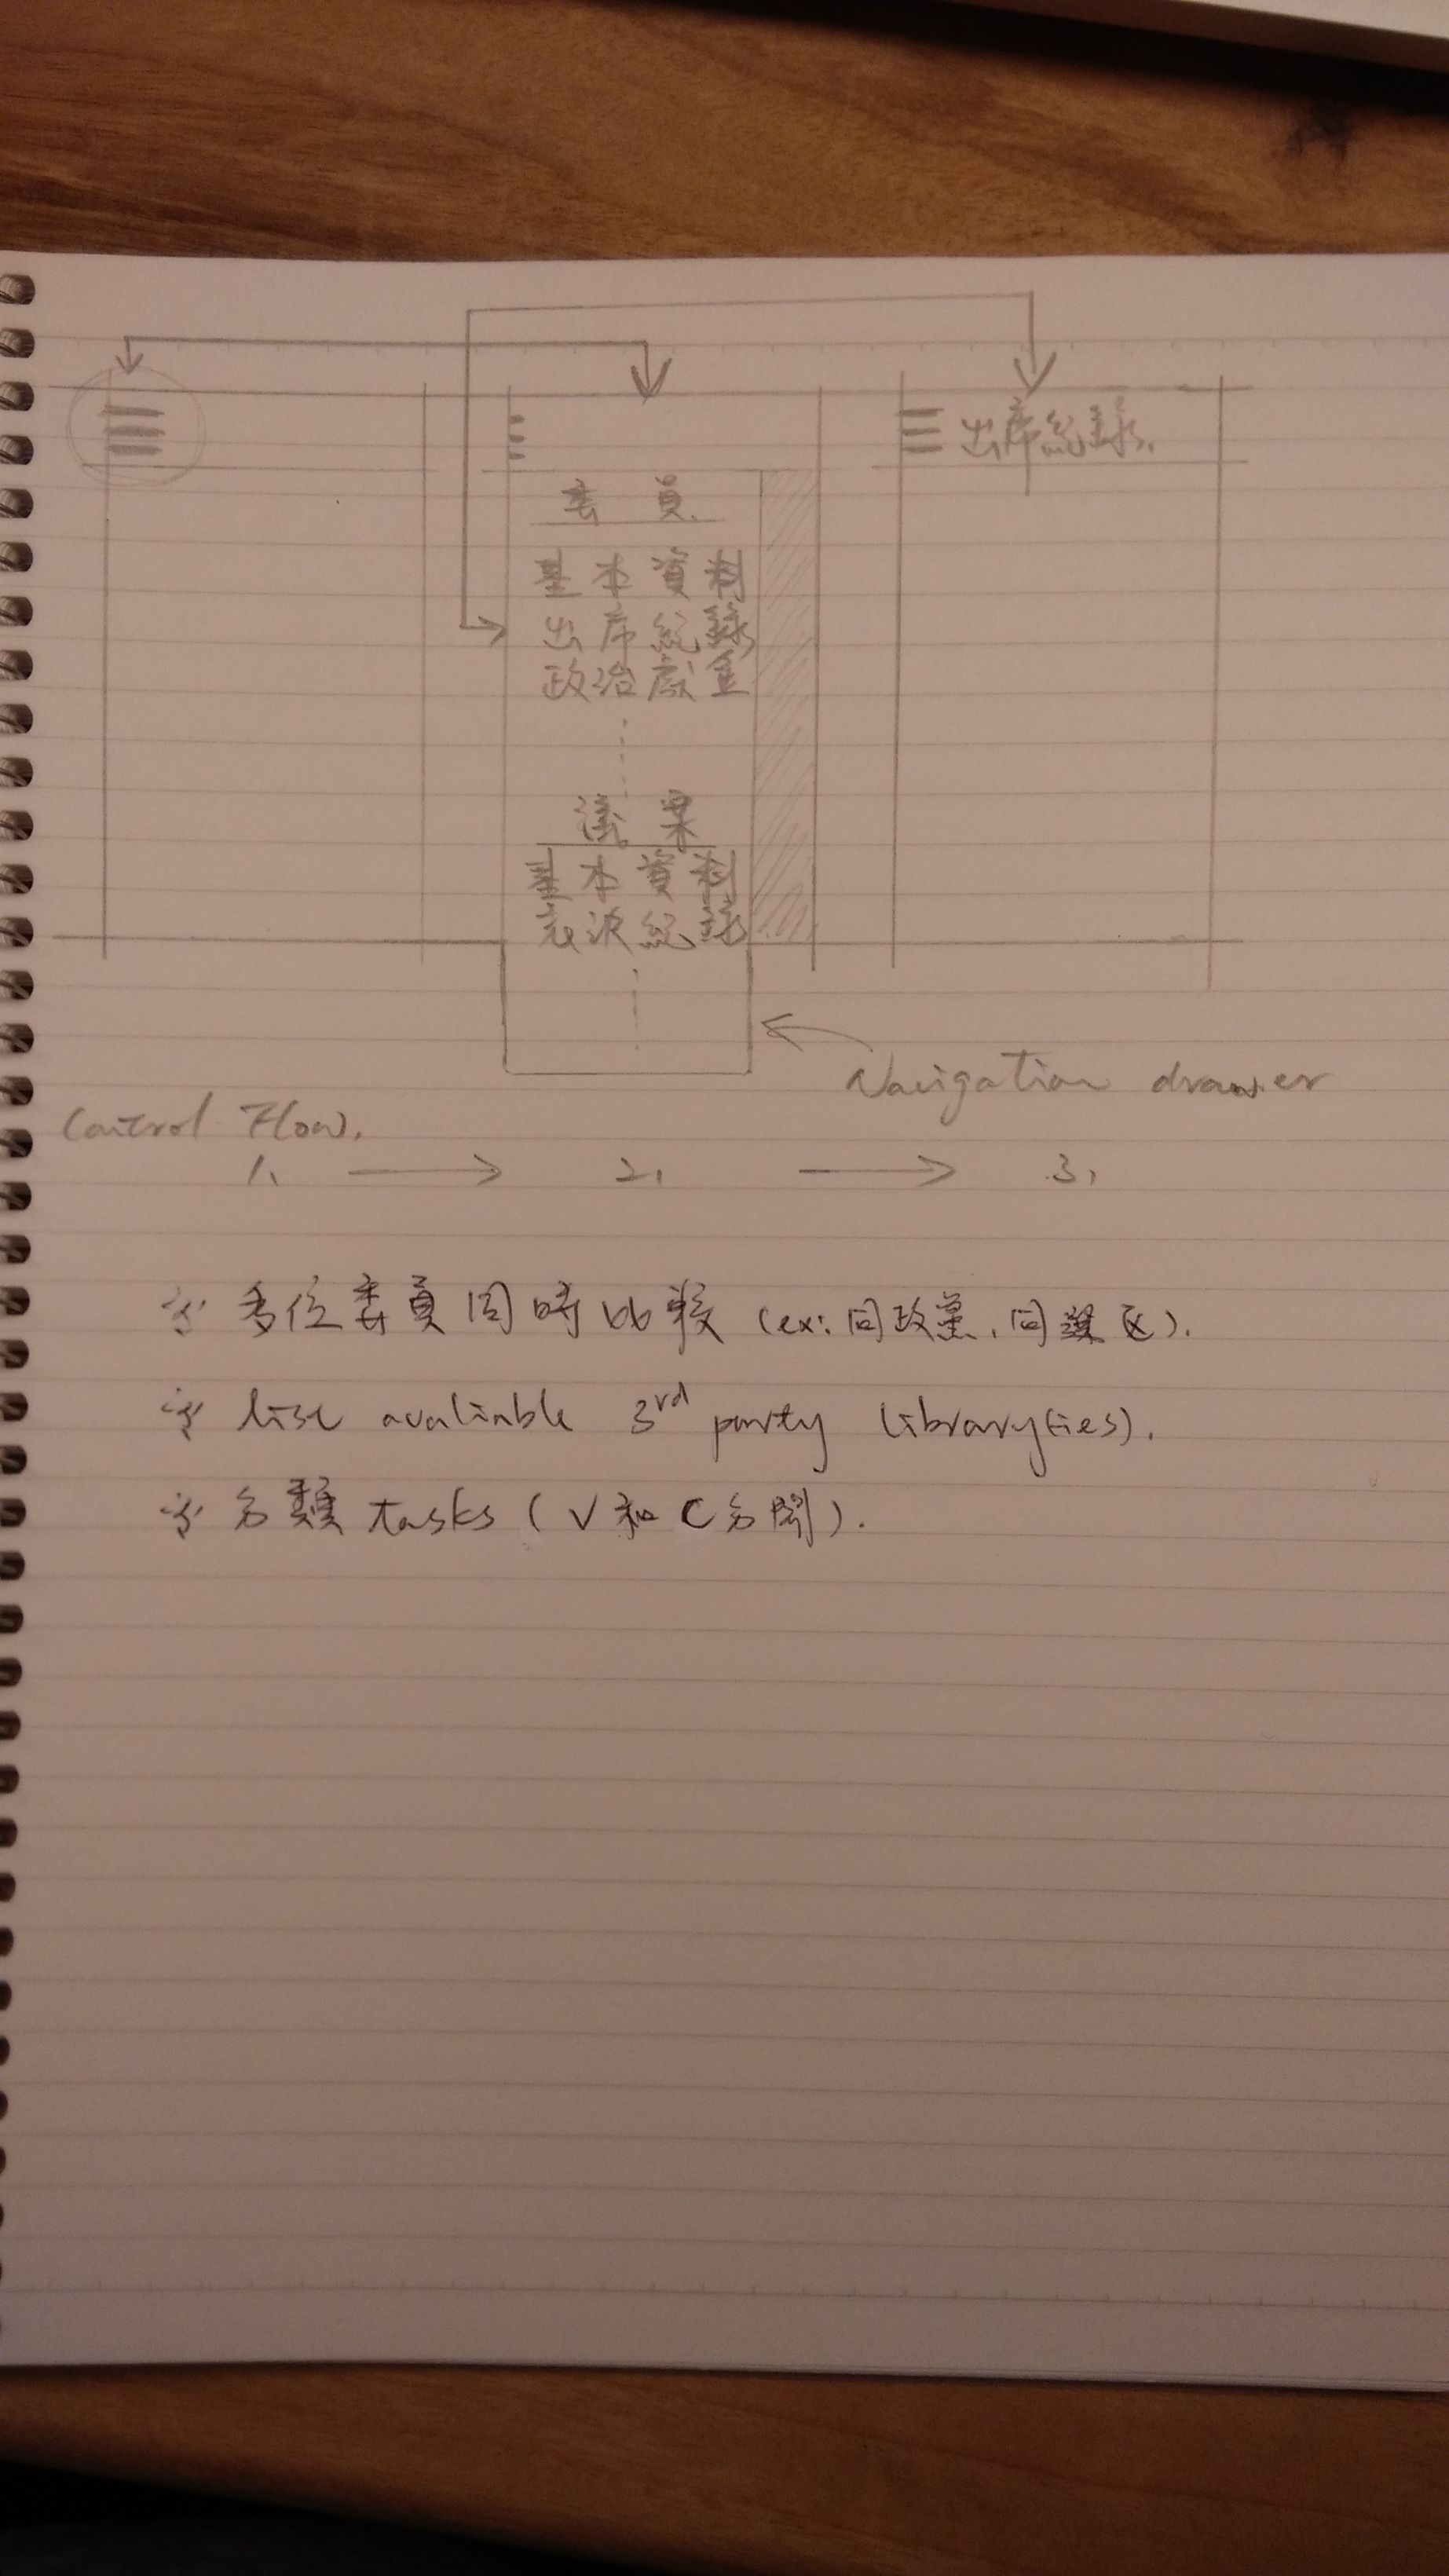 出席紀錄
委員
基本資料
出席紀錄
政治獻金
議案
基本資料
表決紀錄
Navigation drawer
Control Flow.
1. → 2. → 3.
※ 多位委員同時比較 (ex: 同政黨, 同選區).
※ list avaliable 3rd party library(ies).
※ 分類 tasks (V和C分開).